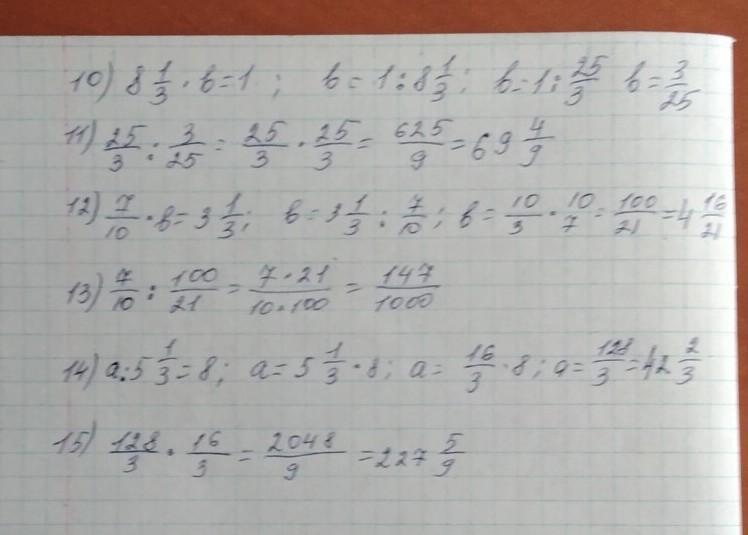 10) 8 1/3 · b = 1 ; b = 1 : 8 1/3 ; b = 1 : 25/3 b = 3/25
11) 25/3 : 3/25 = 25/3 · 25/3 = 625/9 = 69 4/9
12) 7/10 · b = 3 1/3 ; b = 3 1/3 : 7/10 ; b = 10/3 · 10/7 = 100/21 = 4 16/21
13) 7/10 : 100/21 = 7·21/10·100 = 147/1000
14) a : 5 1/3 = 8 ; a = 5 1/3 · 8 ; a = 16/3 · 8 ; a = 128/3 = 42 2/3
15) 128/3 · 16/3 = 2048/9 = 227 5/9